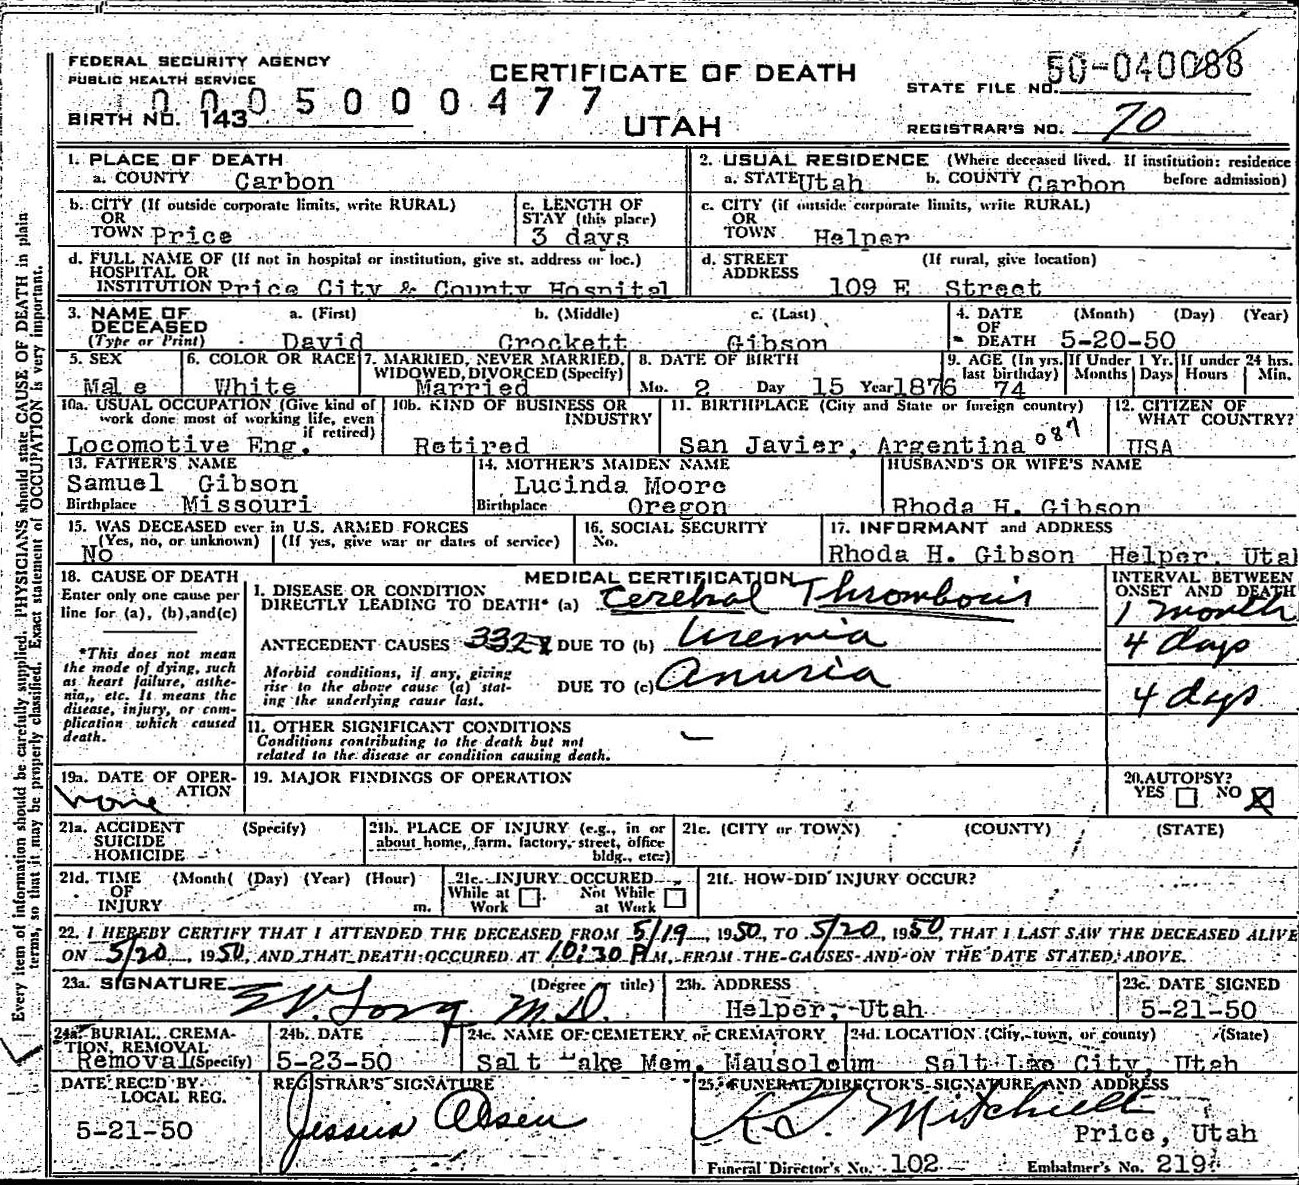 FEDERAL SECURITY AGENCY
PUBLIC HEALTH SERVICE
CERTIFICATE OF DEATH
UTAH
STATE FILE NO. 50-040088
10005000477
BIRTH NO. 143
REGISTRAR'S NO. 70
1. PLACE OF DEATH
a. COUNTY Carbon
2. USUAL RESIDENCE (Where deceased lived. If institution: residence before admission)
a. STATE Utah b. COUNTY Carbon
b. CITY (If outside corporate limits, write RURAL)
OR
TOWN Price
c. LENGTH OF
STAY (this place)
3 days
c. CITY (if outside corporate limits, write RURAL)
OR
TOWN Helper
d. FULL NAME OF (If not in hospital or institution, give st. address or loc.)
HOSPITAL OR
INSTITUTION Price City & County Hospital
d. STREET (If rural, give location)
ADDRESS 109 E Street
3. NAME OF DECEASED (Type or Print)
a. (First) b. (Middle) c. (Last)
David Crockett Gibson
4. DATE OF DEATH (Month) (Day) (Year)
5-20-50
5. SEX
Male
6. COLOR OR RACE
White
7. MARRIED, NEVER MARRIED,
WIDOWED, DIVORCED (Specify)
Married
8. DATE OF BIRTH
Mo. 2 Day 15 Year 1876
9. AGE (In yrs. last birthday) 74
If Under 1 Yr. Months Days
If under 24 hrs. Hours Min.
10a. USUAL OCCUPATION (Give kind of
work done most of working life, even
if retired)
Locomotive Eng.
10b. KIND OF BUSINESS OR
INDUSTRY
Retired
11. BIRTHPLACE (City and State or foreign country)
San Javier, Argentina 087
12. CITIZEN OF
WHAT COUNTRY?
USA
13. FATHER'S NAME
Samuel Gibson
Birthplace Missouri
14. MOTHER'S MAIDEN NAME
Lucinda Moore
Birthplace Oregon
HUSBAND'S OR WIFE'S NAME
Rhoda H. Gibson
15. WAS DECEASED ever in U.S. ARMED FORCES
(Yes, no, or unknown) (If yes, give war or dates of service)
No
16. SOCIAL SECURITY
No.
17. INFORMANT and ADDRESS
Rhoda H. Gibson Helper, Utah
18. CAUSE OF DEATH
Enter only one cause per
line for (a), (b), and (c)
*This does not mean
the mode of dying, such
as heart failure, asthe-
nia,, etc. It means the
disease, injury, or com-
plication which caused
death.
MEDICAL CERTIFICATION
I. DISEASE OR CONDITION
DIRECTLY LEADING TO DEATH* (a) Cerebral Thrombosis
ANTECEDENT CAUSES 332 DUE TO (b) Uremia
Morbid conditions, if any, giving
rise to the above cause (a) stat-
ing the underlying cause last.
DUE TO (c) Anuria
11. OTHER SIGNIFICANT CONDITIONS
Conditions contributing to the death but not
related to the disease or condition causing death.
INTERVAL BETWEEN
ONSET AND DEATH
1 month
4 days
4 days
19a. DATE OF OPER-
ATION
none
19. MAJOR FINDINGS OF OPERATION
20. AUTOPSY?
YES NO X
21a. ACCIDENT (Specify)
SUICIDE
HOMICIDE
21b. PLACE OF INJURY (e.g., in or
about home, farm, factory, street, office
bldg., etc.)
21c. (CITY or TOWN) (COUNTY) (STATE)
21d. TIME (Month( (Day) (Year) (Hour)
OF
INJURY m.
21e. INJURY OCCURED
While at Work Not While at Work
21f. HOW DID INJURY OCCUR?
22. I HEREBY CERTIFY THAT I ATTENDED THE DECEASED FROM 5/19, 1950, TO 5/20, 1950, THAT I LAST SAW THE DECEASED ALIVE
ON 5/20, 1950, AND THAT DEATH OCCURED AT 10:30 P M, FROM THE CAUSES AND ON THE DATE STATED ABOVE.
23a. SIGNATURE (Degree or title)
M.D.
23b. ADDRESS
Helper, Utah
23c. DATE SIGNED
5-21-50
24a. BURIAL, CREMA-
TION, REMOVAL
Removal (Specify)
24b. DATE
5-23-50
24c. NAME OF CEMETERY or CREMATORY
Salt Lake Mem. Mausoleum
24d. LOCATION (City, town, or county) (State)
Salt Lake City, Utah
DATE REC'D BY
LOCAL REG.
5-21-50
REGISTRAR'S SIGNATURE
Olsen
25. FUNERAL DIRECTOR'S SIGNATURE AND ADDRESS
Mitchell
Price, Utah
Funeral Director's No. 102 Embalmer's No. 219
Every item of information should be carefully supplied. PHYSICIANS should state CAUSE OF DEATH in plain
terms, so that it may be properly classified. Exact statement of OCCUPATION is very important.